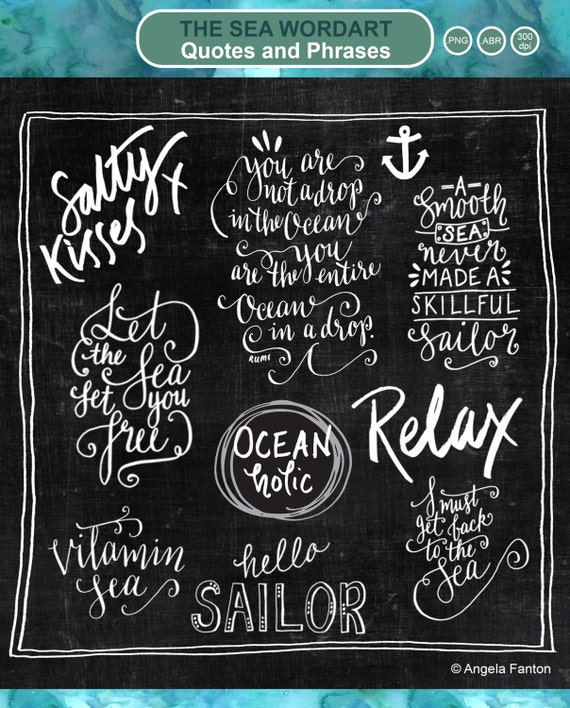 THE SEA WORDART
Quotes and Phrases
PNG
ABR
300
dpi
Salty
Kisses x
you are
not a drop
in the Ocean
you
are the entire
Ocean
in a drop.
RUMI
A
Smooth
SEA
never
MADE A
SKILLFUL
sailor
Let
the Sea
Set you
free
OCEAN
holic
Relax
vitamin
sea
hello
SAILOR
I must
get back
to the
Sea
© Angela Fanton